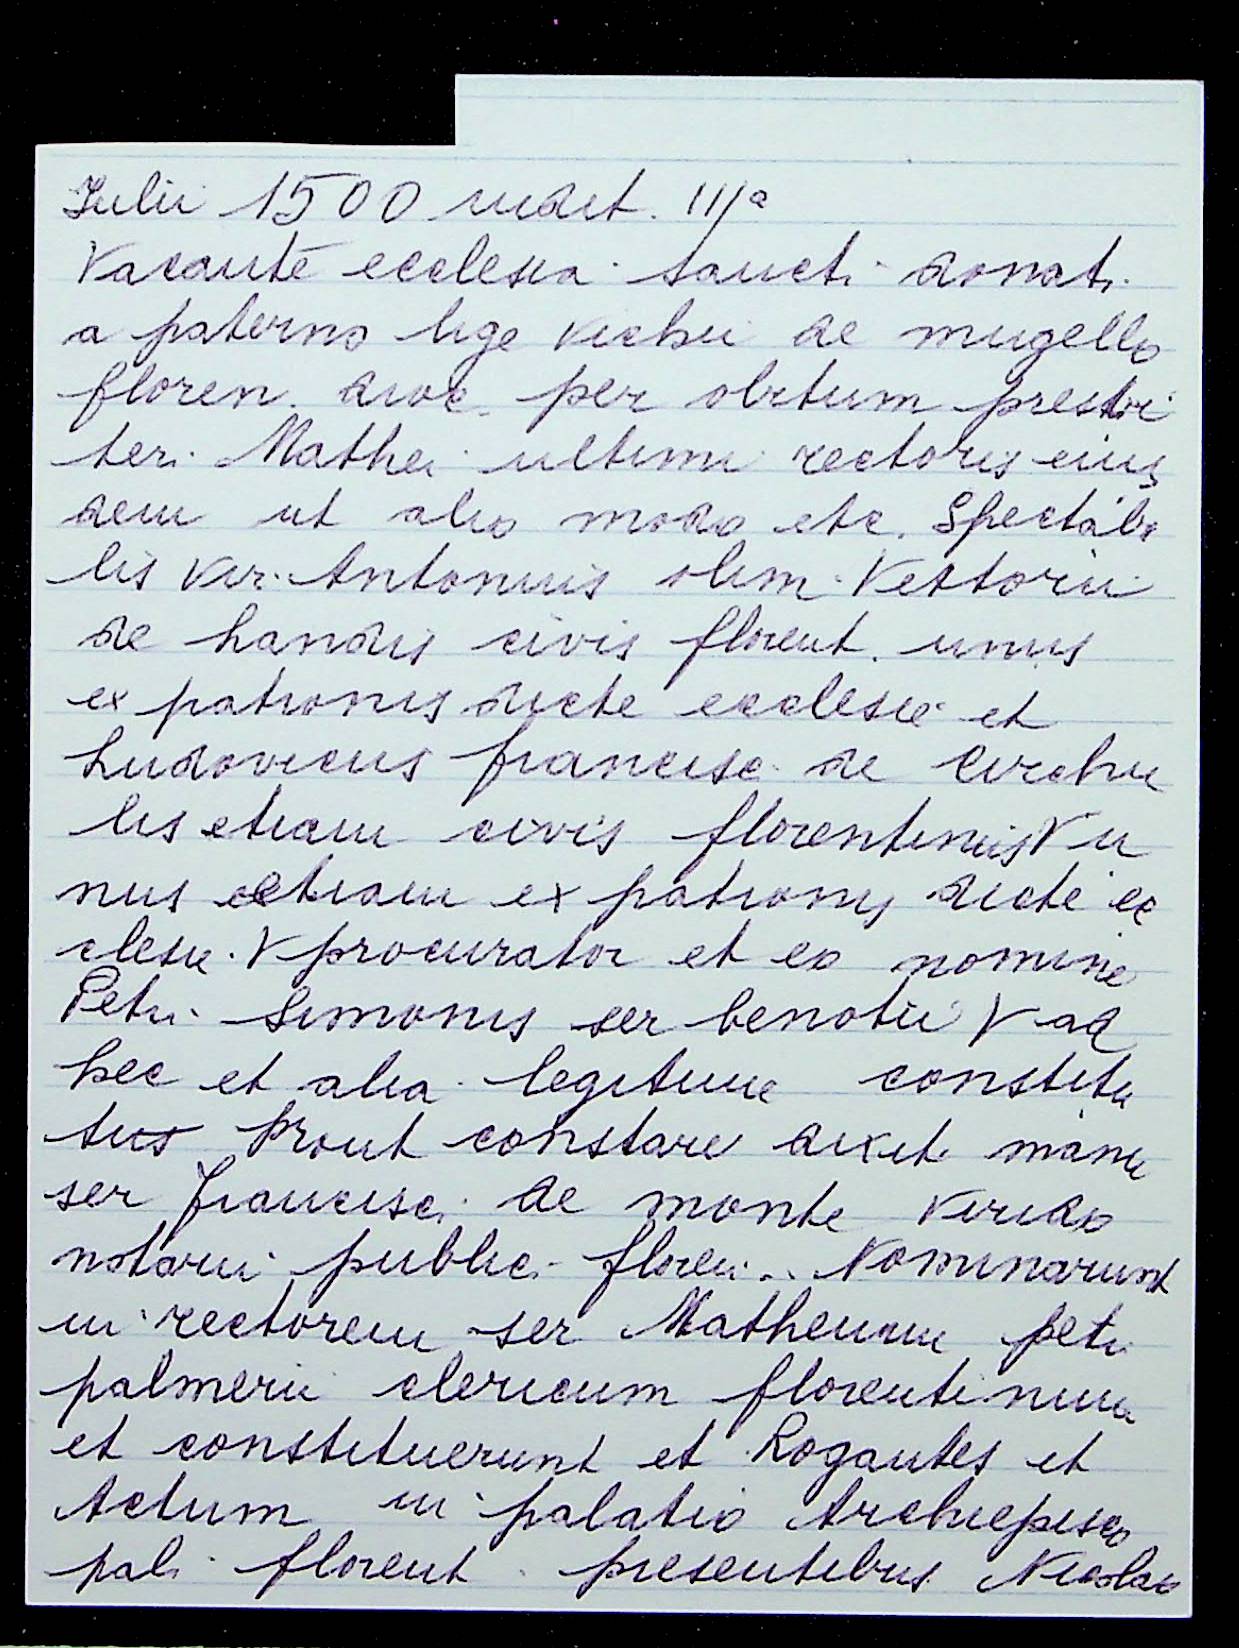 Iulii 1500 indict. IIIa
Vacante ecclesia sancti donati
a paterno lige vichii de mugello
floren. dioc. per obitum presbi
teri Mathei ultimi rectoris eius
dem ut alio modo etc. Spectabi
lis vir Antonius olim Vettorii
de landis civis florent. unus
ex patronis dicte ecclesie et
Ludovicus francisc. de
lis etiam civis florentinus V u
nus etiam ex patronis dicte ec
clesie. V procurator et eo nomine
Petri Simonis ser benotii V ad
hec et alia legitime constitu
tus prout constare dixit manu
ser francisci de monte Virido
notarii public. floren. Nominarunt
in rectorem ser Matheum petri
palmerii clericum florentinum
et constituerunt et Rogantes et
Actum in palatio Archiepisco
pali florent. presentibus Nicolao